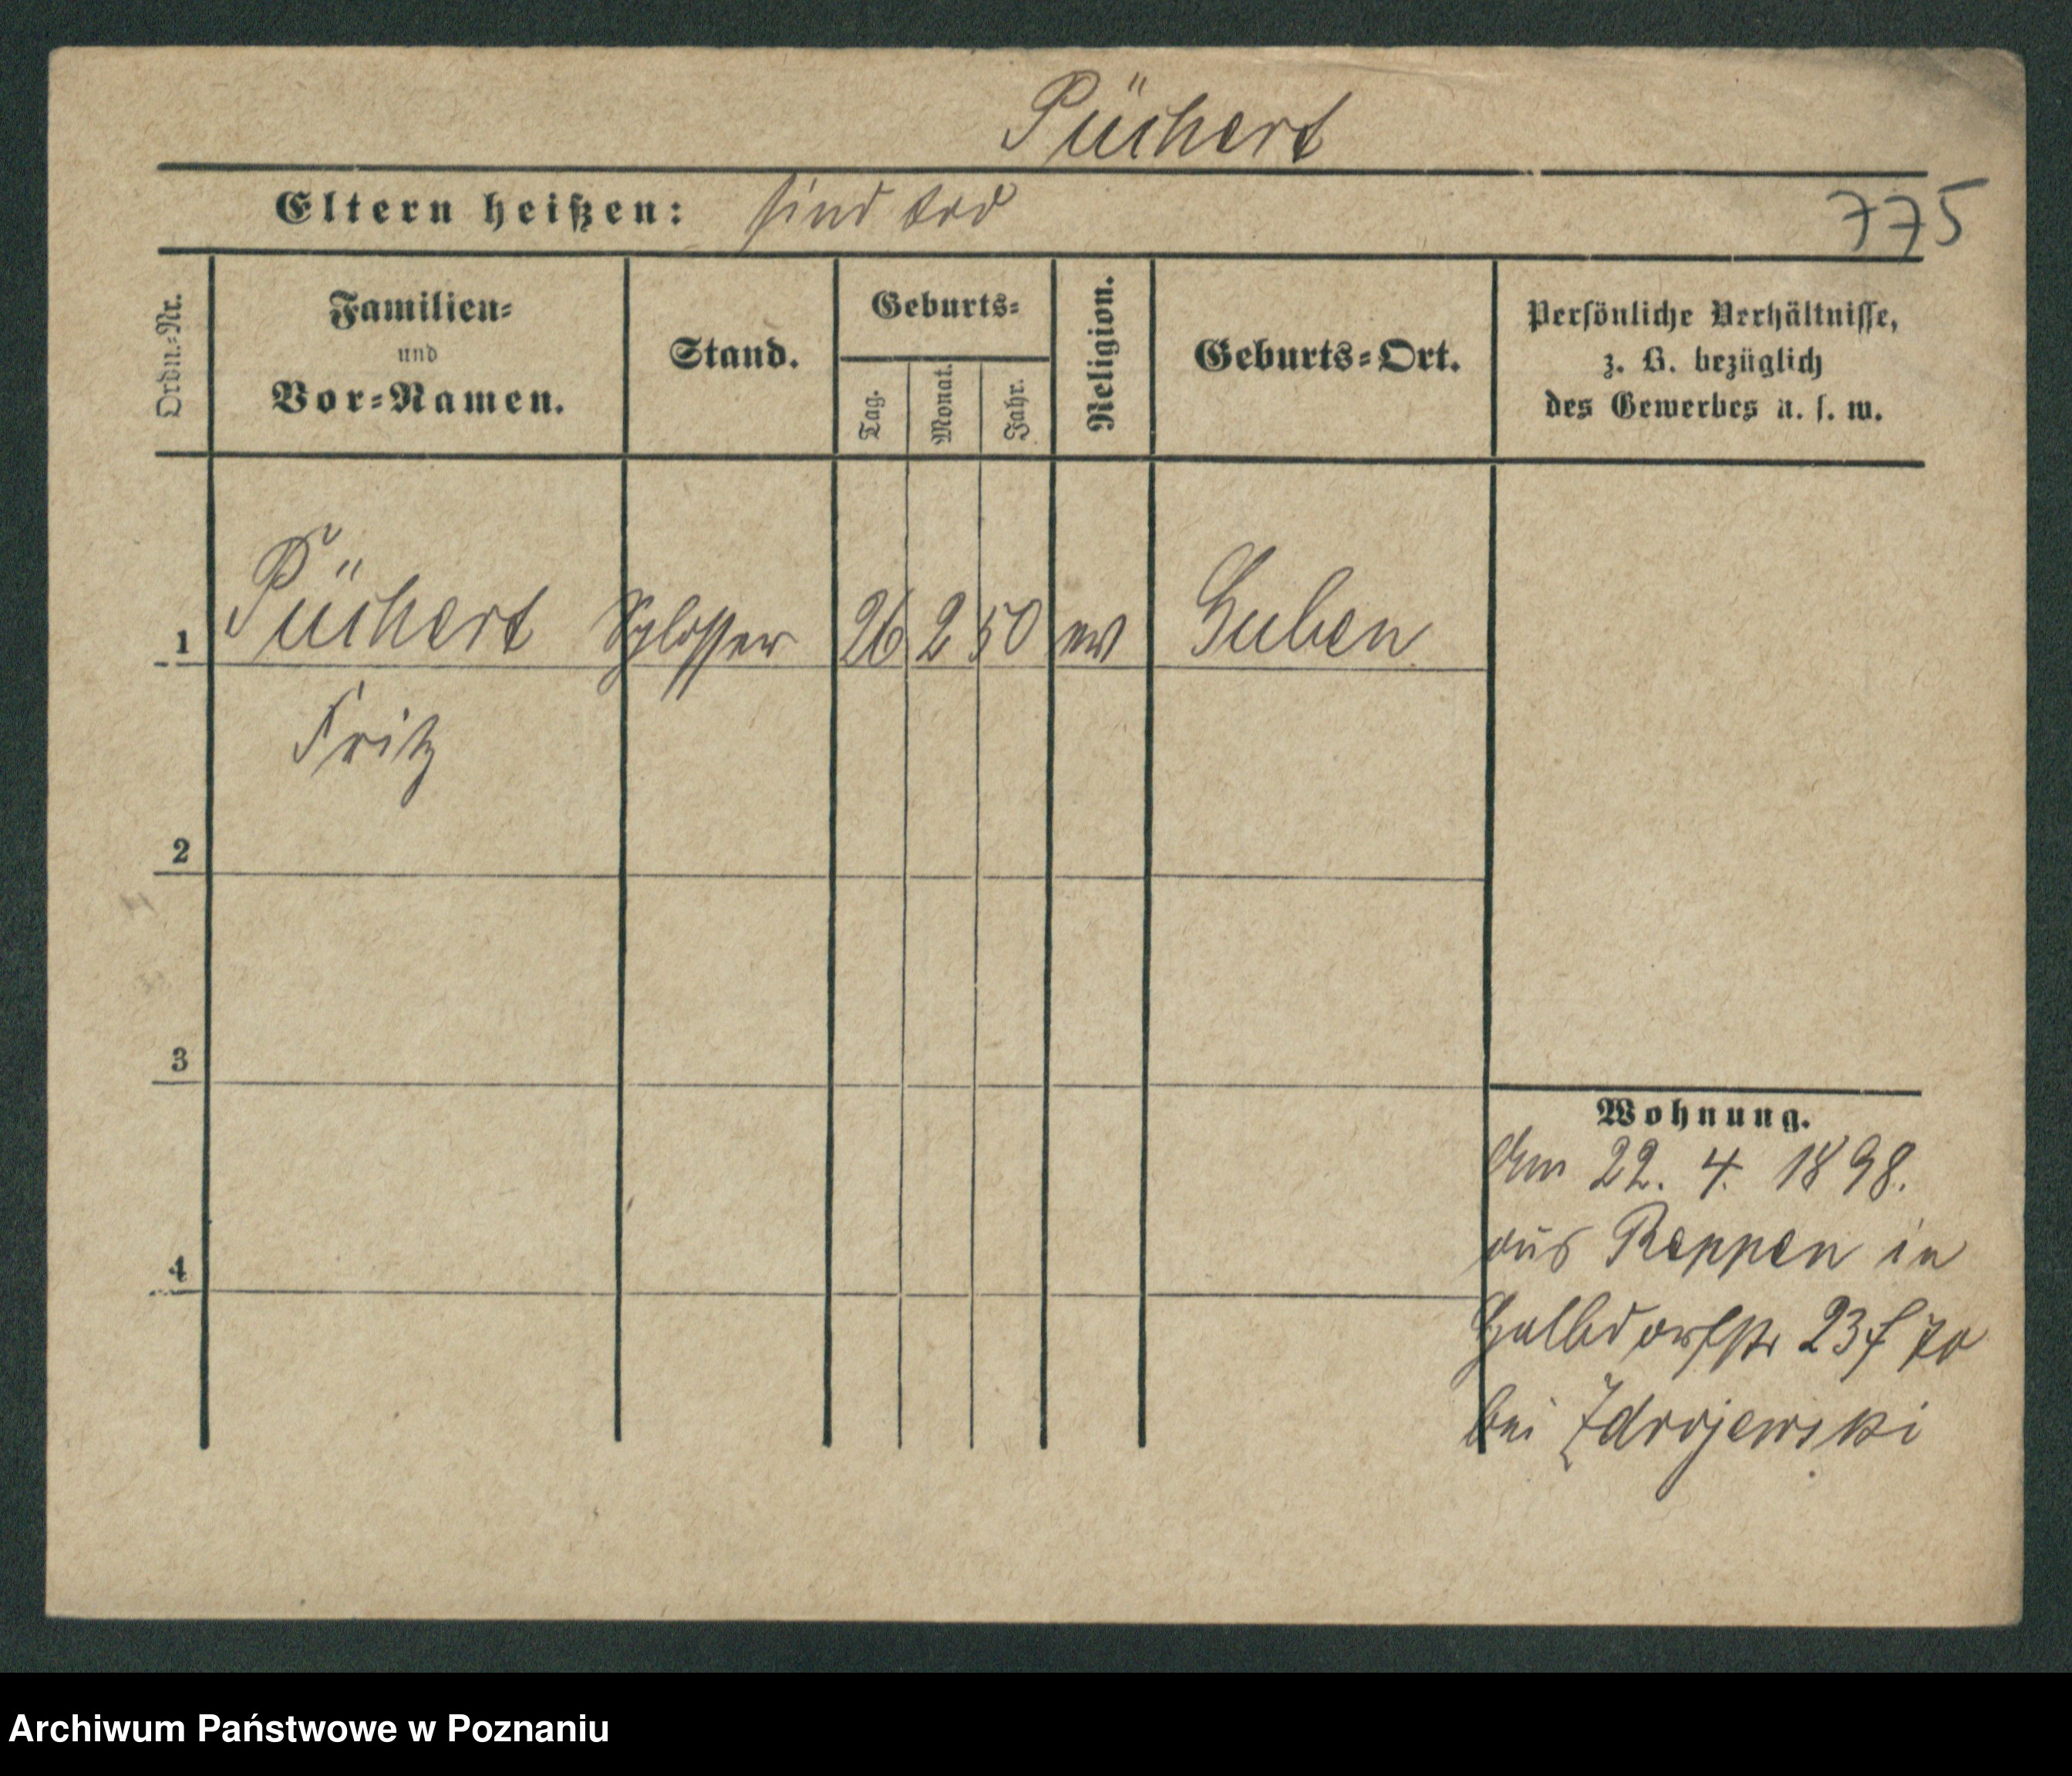 Püchert
Eltern heißen: sind tod
775
Ordn.-Nr.
Familien-
und
Vor-Namen.
Stand.
Geburts-
Tag.
Monat.
Jahr.
Religion.
Geburts-Ort.
Persönliche Verhältnisse,
z. B. bezüglich
des Gewerbes u. s. w.
1 Püchert Schlosser 26 2 50 ev Guben
Fritz
2
3
4
Wohnung.
Am 22. 4. 1898.
aus Reppen in
Halbdorfstr 23
bei Zdrojewski
Archiwum Państwowe w Poznaniu